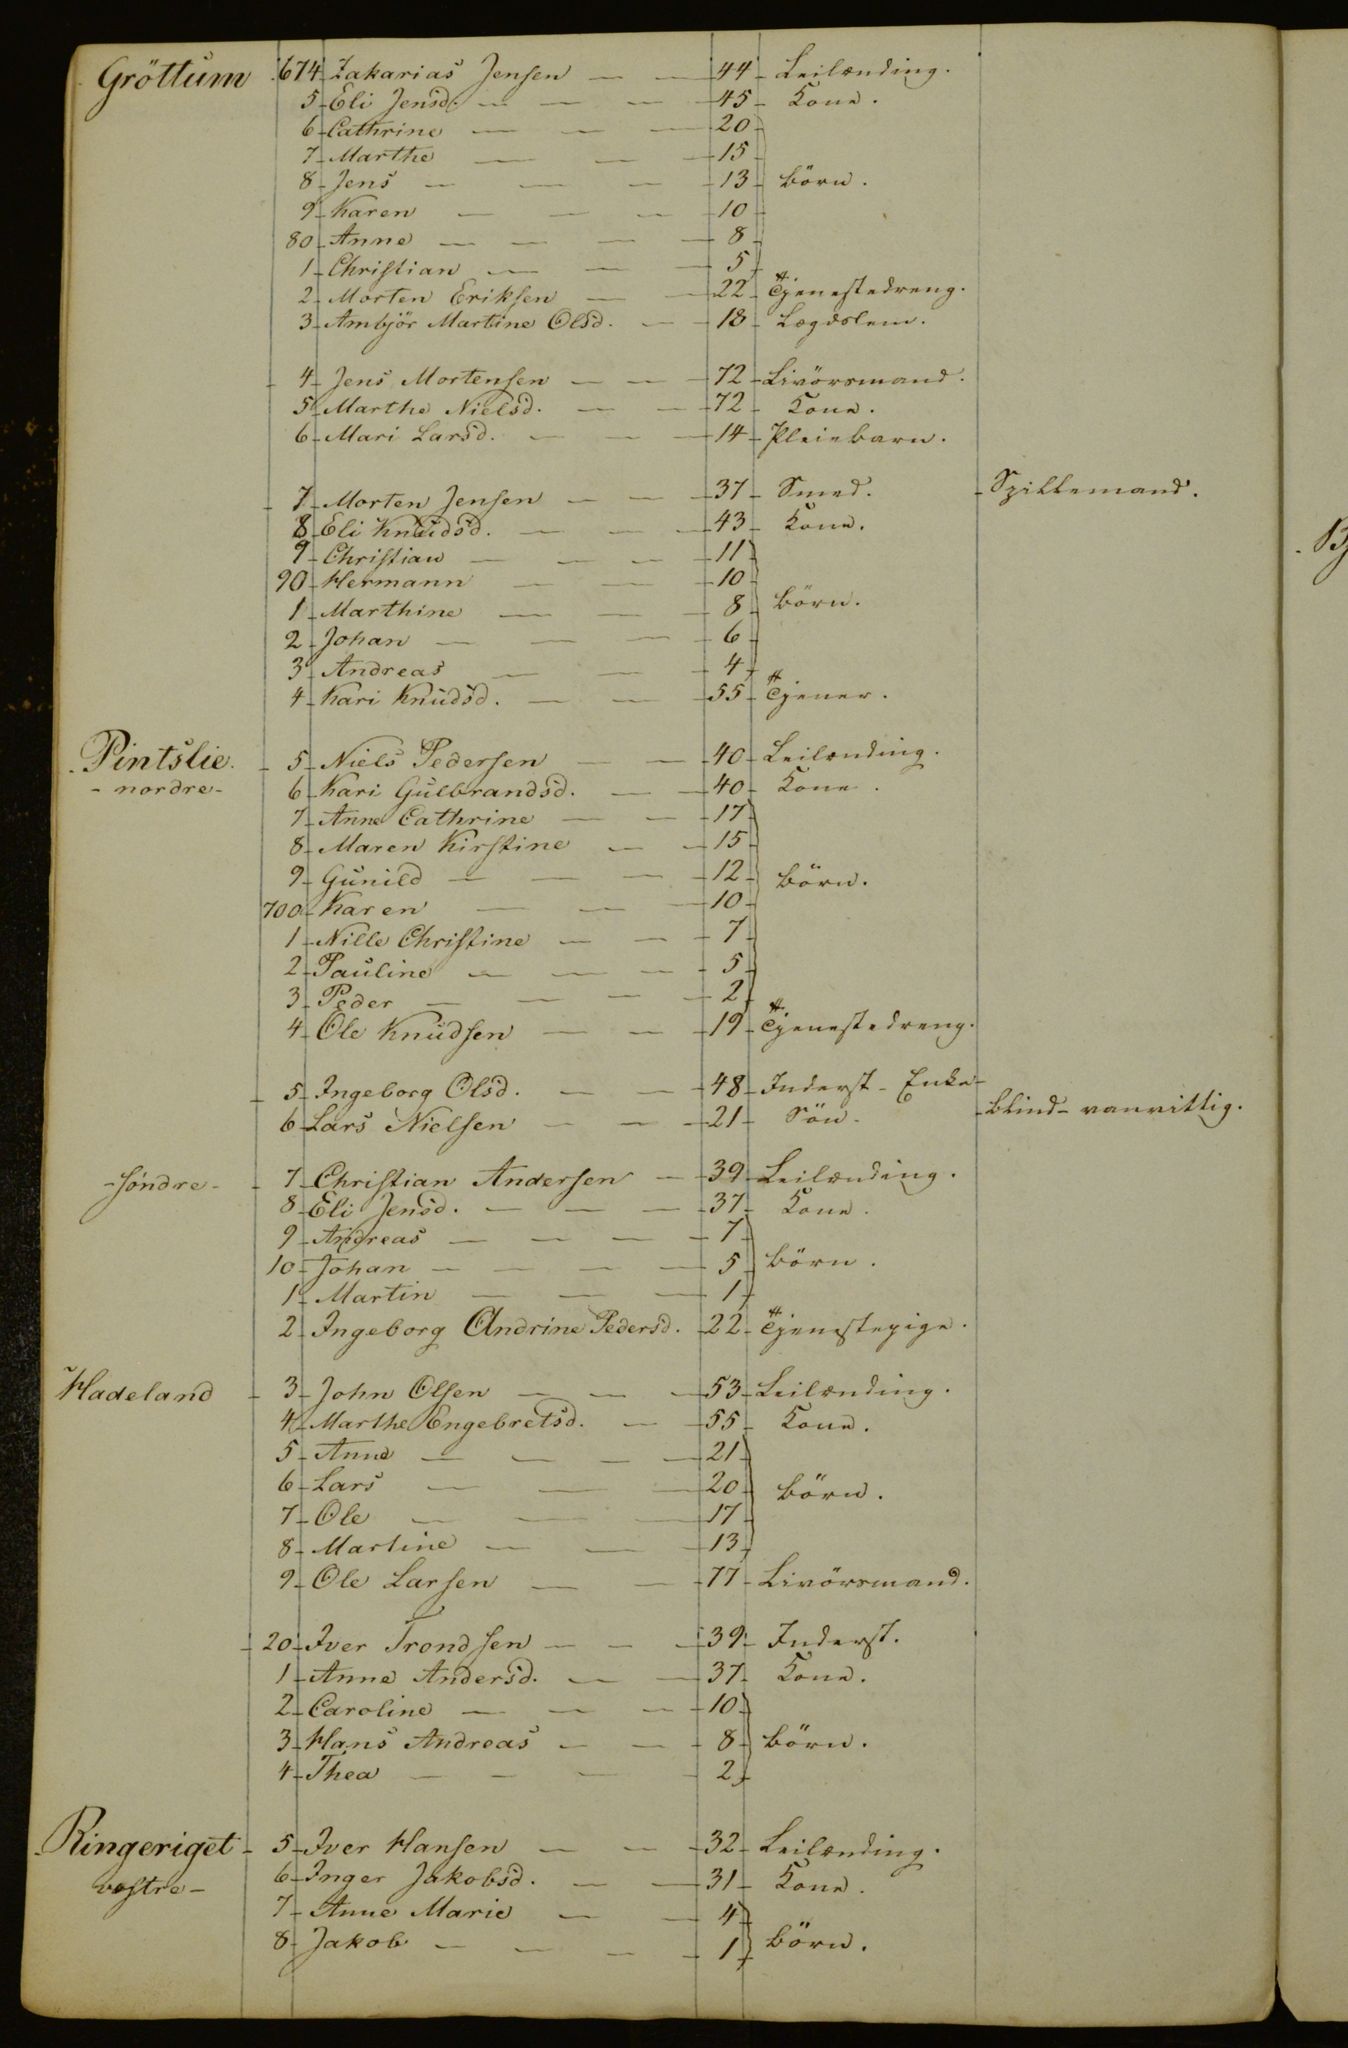 Gröttum 674 Zakarias Jensen — — 44 Leilænding.
5 Eli Jensd. — — — 45 Kone.
6 Cathrine — — — 20
7 Marthe — — — 15
8 Jens — — — 13 Börn.
9 Karen — — — 10
80 Anne — — — — 8
1 Christian — — — 5
2 Morten Eriksen — — 22 Tjenestedreng.
3 Ambjör Martine Olsd. — 18 Lægdslem.
4 Jens Mortensen — — — 72 Livörsmand.
5 Marthe Nielsd. — — 72 Kone.
6 Mari Larsd. — — — 14 Pleiebarn.
7 Morten Jensen — — — 37 Smed. Spillemand.
8 Eli Knudsd. — — — 43 Kone.
9 Christian — — — 11
90 Hermann — — — 10
1 Marthine — — — 8 Börn.
2 Johan — — — 6
3 Andreas — — — 4
4 Kari Knudsd. — — 55 Tjener.
Pintslie 5 Niels Pedersen — — 40 Leilænding.
- nordre - 6 Kari Gulbrandsd. — — 40 Kone.
7 Anne Cathrine — — 17
8 Maren Kirstine — — 15
9 Gunild — — — 12 Börn.
700 Karen — — — 10
1 Nille Christine — — 7
2 Pauline — — — 5
3 Peder — — — — 2
4 Ole Knudsen — — 19 Tjenestedreng.
5 Ingeborg Olsd. — — 48 Inderst - Enke -
6 Lars Nielsen — — — 21 Sön. blind - vanvittig.
- söndre - 7 Christian Andersen — 39 Leilænding.
8 Eli Jensd. — — — 37 Kone.
9 Andreas — — — — 7
10 Johan — — — — 5 Börn.
1 Martin — — — 1
2 Ingeborg Andrine Pedersd. 22 Tjenestepige.
Hadeland 3 John Olsen — — — 53 Leilænding.
4 Marthe Engebretsd. — 55 Kone.
5 Anne — — — — 21
6 Lars — — — 20 Börn.
7 Ole — — — 17
8 Martine — — — 13
9 Ole Larsen — — 77 Livörsmand.
20 Iver Trondsen — — — 39 Inderst.
1 Anne Andersd. — — 37 Kone.
2 Caroline — — — 10
3 Hans Andreas — — 8 Börn.
4 Thea — — — 2
Ringeriget 5 Iver Hansen — — 32 Leilænding.
vestre - 6 Inger Jakobsd. — — 31 Kone.
7 Anne Marie — — 4
8 Jakob — — — — 1 Börn.